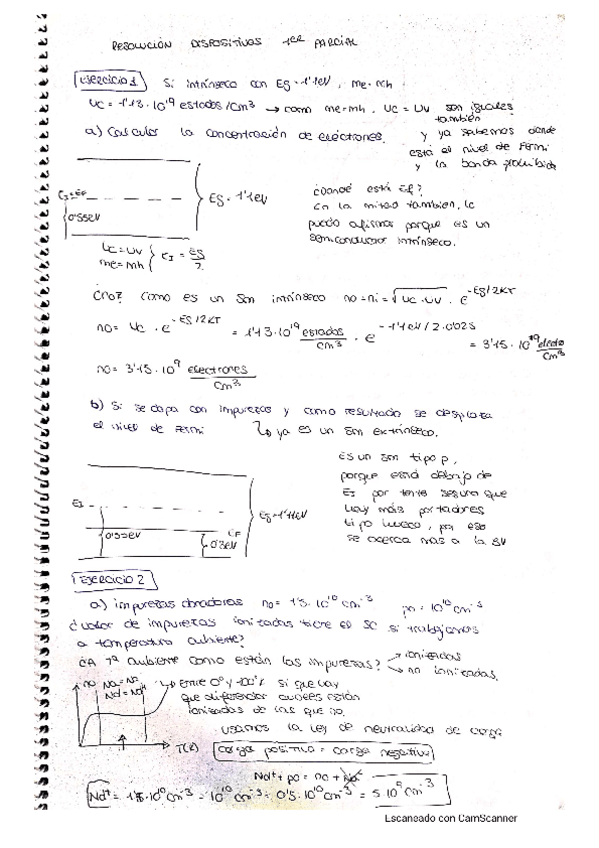 RESOLUCIÓN DISPOSITIVOS 1er PARCIAL
Ejercicio 1 Si intrínseco con Eg = 1'1eV, me=mh
Uc = 1'13·10^19 estados/cm3 → como me=mh, Uc = Uv son iguales
también
a) Calcular la concentración de electrones. y ya sabemos donde
está el nivel de Fermi
y la banda prohibida
EI=EF
0'55eV
Eg = 1'1eV
¿Donde está Ef?
En la mitad también, lo
puedo afirmar porque es un
semiconductor intrínseco.
Uc=Uv
me=mh } EI = Eg/2
¿no? Como es un Sm intrínseco no=ni=√Uc·Uv · e^-Eg/2KT
no= Uc · e^-Eg/2KT = 1'13·10^19 estados/cm3 · e^-1'1eV/2·0'025 = 3'15·10^9 elect/cm3
no= 3'15·10^9 electrones/cm3
b) Si se dopa con impurezas y como resultado se desplaza
el nivel de Fermi ↳ ya es un Sm extrínseco.
Es un sm tipo p,
porque está debajo de
EI por tanto seguro que
hay más portadores
tipo hueco, por eso
se acerca más a la BV
EI
0'55eV
EF
0'3eV
Eg=1'1eV
Ejercicio 2
a) impurezas donadoras no= 1'5·10^10 cm^-3 po= 10^10 cm^-3
¿valor de impurezas ionizadas tiene el SC si trabajamos
a temperatura ambiente?
¿A Tª ambiente como están las impurezas? → ionizadas
→ no ionizadas.
no
T(K)
↳ entre 0º y 100ºK si que hay
que diferenciar cuales están
ionizadas de las que no.
usamos la ley de neutralidad de carga
carga positiva = carga negativa
Nd+ + po = no + Na-
Nd+ = 1'5·10^10 cm^-3 - 10^10 cm^-3 = 0'5·10^10 cm^-3 = 5·10^9 cm^-3
Escaneado con CamScanner